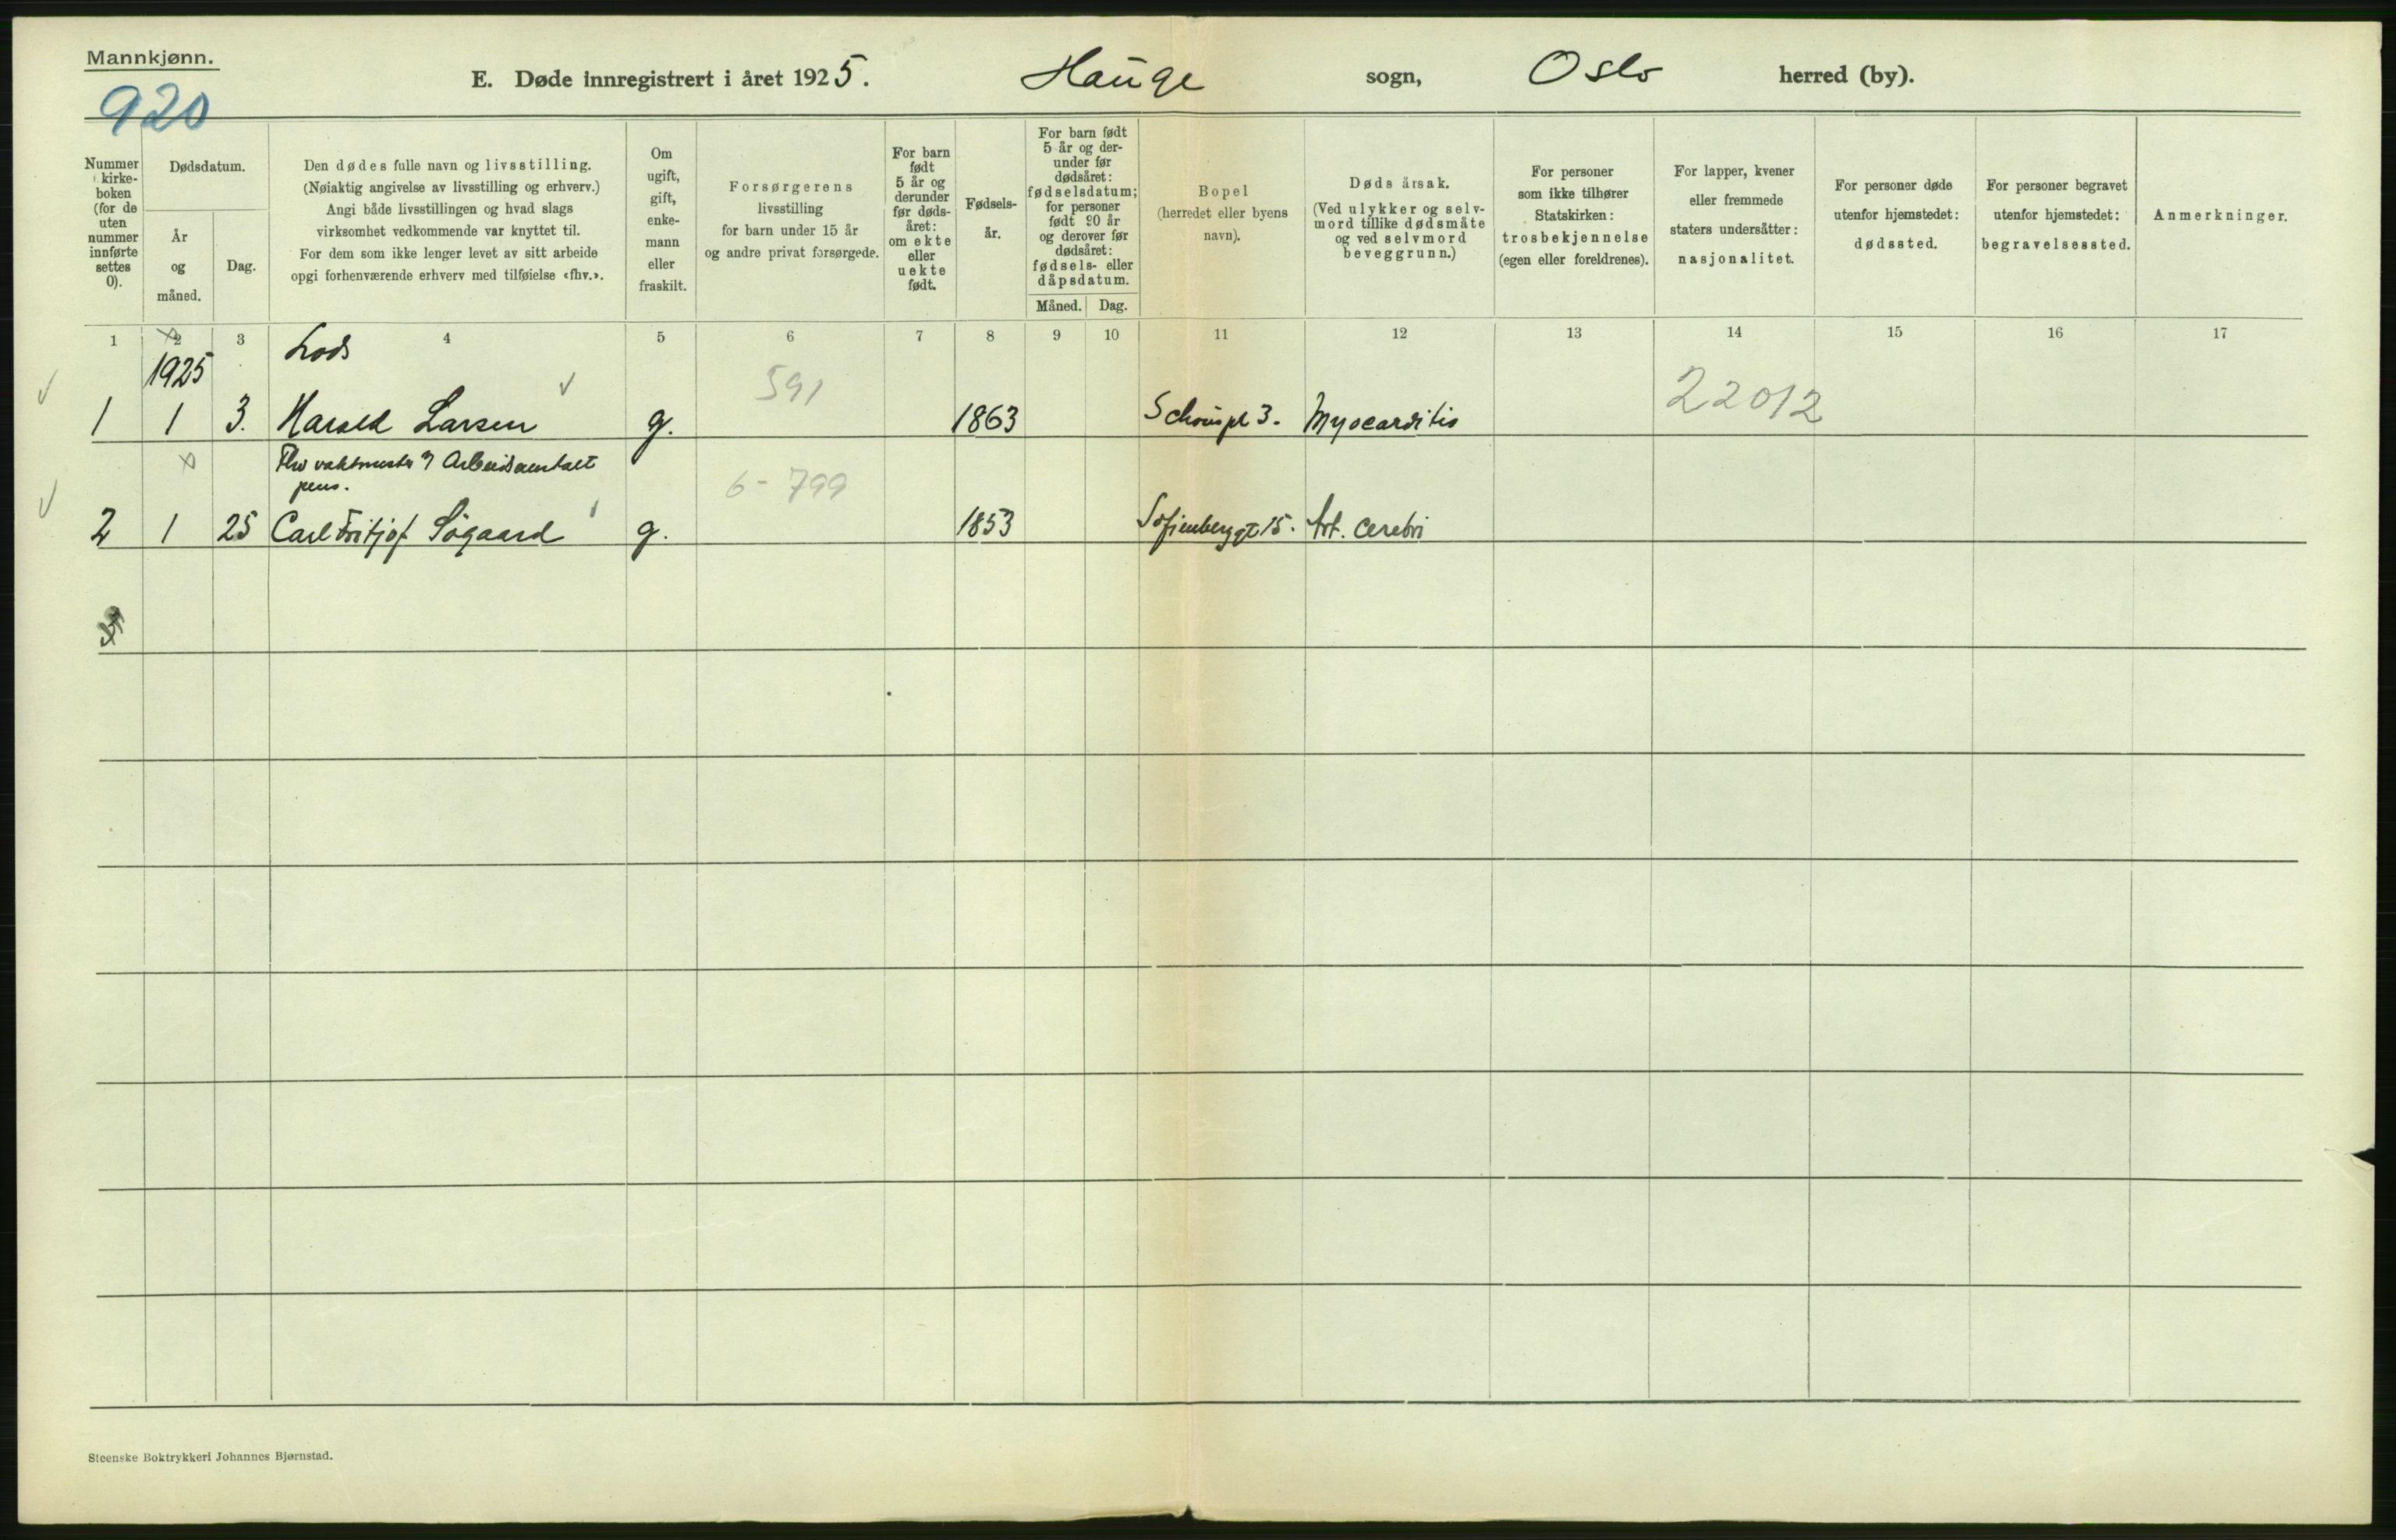 Mannkjønn.
920
E. Døde innregistrert i året 1925. Hauge sogn, Oslo herred (by).
Nummer
i kirke-
boken
(for de
uten
nummer
innførte
settes
0).
Dødsdatum.
År
og
måned.
Dag.
Den dødes fulle navn og livsstilling.
(Nøiaktig angivelse av livsstilling og erhverv.)
Angi både livsstillingen og hvad slags
virksomhet vedkommende var knyttet til.
For dem som ikke lenger levet av sitt arbeide
opgi forhenværende erhverv med tilføielse «fhv.».
Om
ugift,
gift,
enke-
mann
eller
fraskilt.
Forsørgerens
livsstilling
for barn under 15 år
og andre privat forsørgede.
For barn
født
5 år og
derunder
før døds-
året:
om ekte
eller
uekte
født.
Fødsels-
år.
For barn født
5 år og der-
under før
dødsåret:
fødselsdatum;
for personer
født 90 år
og derover før
dødsåret:
fødsels- eller
dåpsdatum.
Måned. Dag.
Bopel
(herredet eller byens
navn).
Dødsårsak.
(Ved ulykker og selv-
mord tillike dødsmåte
og ved selvmord
beveggrunn.)
For personer
som ikke tilhører
Statskirken:
trosbekjennelse
(egen eller foreldrenes).
For lapper, kvener
eller fremmede
staters undersåtter:
nasjonalitet.
For personer døde
utenfor hjemstedet:
dødssted.
For personer begravet
utenfor hjemstedet:
begravelsessted.
Anmerkninger.
1 2 3 4 5 6 7 8 9 10 11 12 13 14 15 16 17
1925 Lods 591 22012
1 1 3. Harald Larsen g. 1863 Schouspl 3. Myocarditis
Fhv vaktmester Arbeidsanstalt
pens. 6-799
2 1 25 Carl Fritjof Søgaard g. 1853 Sofienberggt 15. Art. cerebri
3
Steenske Boktrykkeri Johannes Bjørnstad.